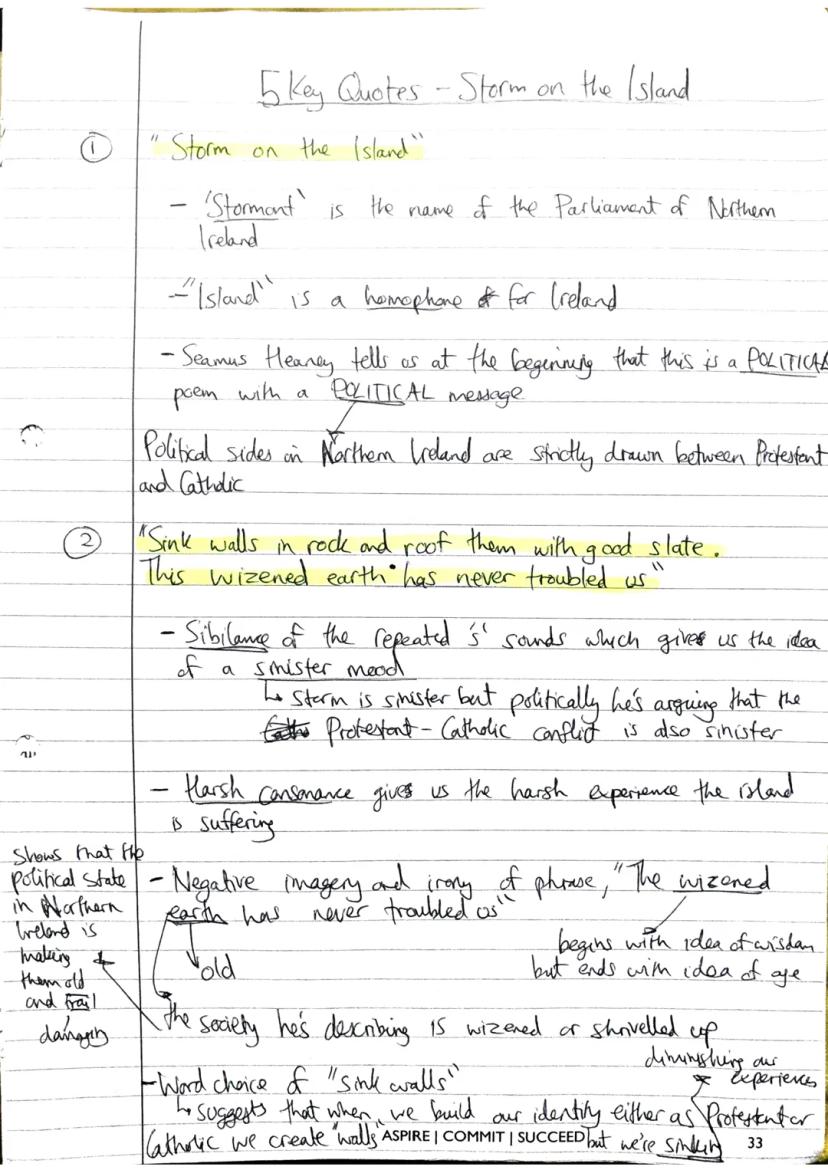 5 Key Quotes - Storm on the Island
① "Storm on the Island"
- 'Stormont' is the name of the Parliament of Northern
Ireland
- "Island" is a homophone for Ireland
- Seamus Heaney tells us at the beginning that this is a POLITICAL
poem with a POLITICAL message
Political sides in Northern Ireland are strictly drawn between Protestant
and Catholic
② "Sink walls in rock and roof them with good slate.
This wizened earth has never troubled us"
- Sibilance of the repeated 's' sounds which gives us the idea
of a sinister mood
↳ storm is sinister but politically he's arguing that the
Protestant - Catholic conflict is also sinister
- Harsh consonance gives us the harsh experience the island
is suffering
Shows that the
political state
in Northern
Ireland is
making
them old
and frail
damaging
- Negative imagery and irony of phrase, "The wizened
earth has never troubled us"
begins with idea of wisdom
but ends with idea of age
old
the society he's describing is wizened or shrivelled up
diminishing our
experiences
- Word choice of "sink walls"
↳ suggests that when we build our identity either as Protestant or
Catholic we create "walls" but we're sinking
ASPIRE | COMMIT | SUCCEED
33